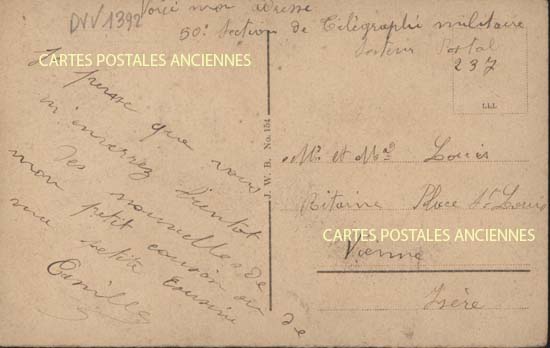 DVV 1392
Voici mon adresse
50e Section de Télégraphie militaire
Secteur Postal
237
CARTES POSTALES ANCIENNES
Je pense que vous
m'enverrez bientot
des nouvelles de
mon petit cousin ou de
ma petite cousine
Camille
J. W. B. No. 154
LLL
Mr. et Md Louis
Ritaine Place St Louis
CARTES POSTALES ANCIENNES
Vienne
Isère